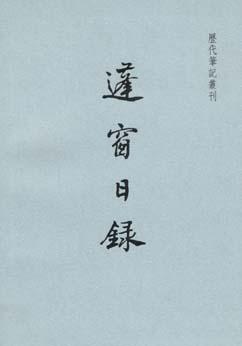 歷代筆記叢刊
蓬窗日録